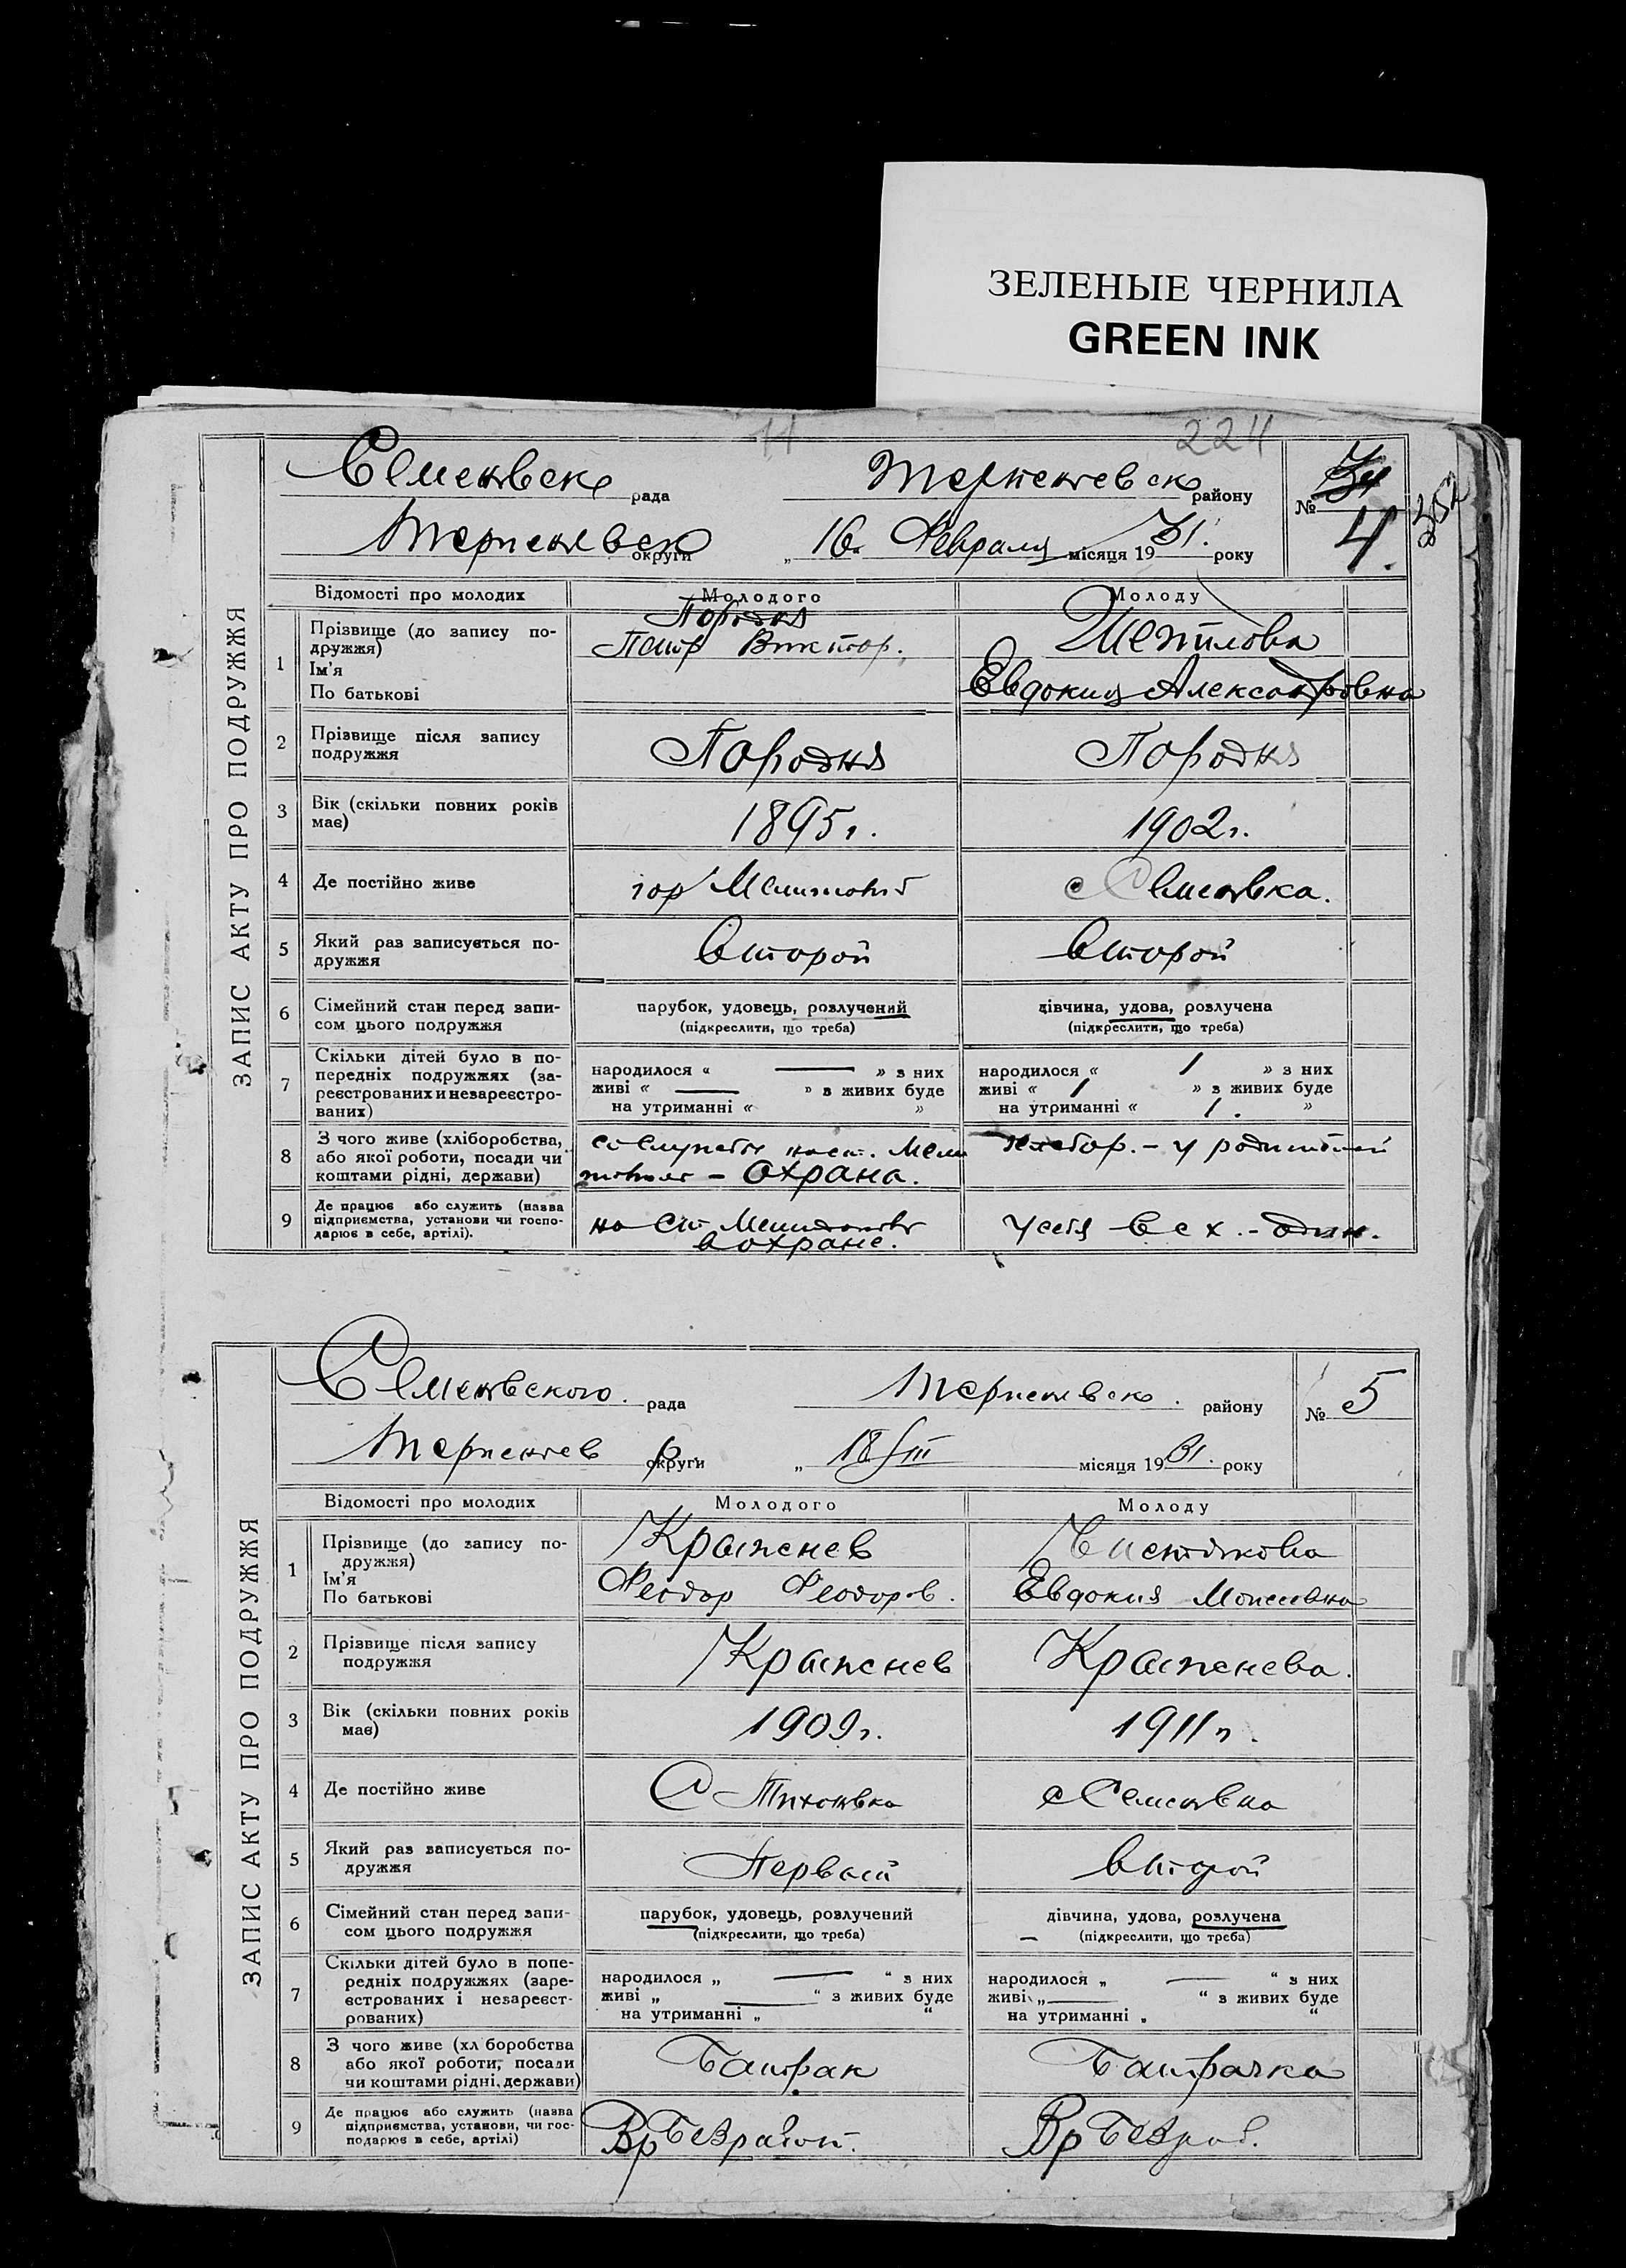 ЗЕЛЕНЫЕ ЧЕРНИЛА
GREEN INK
11 224
ЗАПИС АКТУ ПРО ПОДРУЖЖЯ
Семеновск рада Терпеньевск району № 4.
Терпеньевск округи „ 16 Февраля місяця 1931. року
Відомості про молодих Молодого Молоду
1 Прізвище (до запису по-
дружжя)
Ім'я
По батькові
Породня
Петр Виктор.
Шепилова
Евдокия Александровна
2 Прізвище після запису
подружжя
Породня Породня
3 Вік (скільки повних років
має)
1895 г. 1902 г.
4 Де постійно живе гор Мелитополь с Семеновка.
5 Який раз записується по-
дружжя
Второй Второй
6 Сімейний стан перед запи-
сом цього подружжя
парубок, удовець, розлучений
(підкреслити, що треба)
дівчина, удова, розлучена
(підкреслити, що треба)
7 Скільки дітей було в по-
передніх подружжях (за-
реєстрованих и незареєстро-
ваних)
народилося « — » з них
живі « — » з живих буде
на утриманні « »
народилося « 1 » з них
живі « 1 » з живих буде
на утриманні « 1. »
8 З чого живе (хліборобства,
або якої роботи, посади чи
коштами рідні, держави)
со службы
– охрана.
хлебор. – у родителей
9 Де працює або служить (назва
підприємства, установи чи госпо-
дарює в себе, артілі).
на ст Мелитополь
в охране.
у себя в с х. – один.
ЗАПИС АКТУ ПРО ПОДРУЖЖЯ
Семеновского. рада Терпеньевск. району № 5
Терпеньев р округи „ 18/III місяця 1931. року
Відомості про молодих Молодого Молоду
1 Прізвище (до запису по-
дружжя)
Ім'я
По батькові
Крыженев
Феодор Феодоров.
Чистякова
Евдокия Моисеевна
2 Прізвище після запису
подружжя
Крыженев Крыженева.
3 Вік (скільки повних років
має)
1909 г. 1911 г.
4 Де постійно живе С Тихоновка с Семеновка
5 Який раз записується по-
дружжя
Первый Второй
6 Сімейний стан перед запи-
сом цього подружжя
парубок, удовець, розлучений
(підкреслити, що треба)
дівчина, удова, розлучена
(підкреслити, що треба)
7 Скільки дітей було в попе-
редніх подружжях (заре-
єстрованих і незареєст-
рованих)
народилося „ — “ з них
живі „ — “ з живих буде
на утриманні „ “
народилося „ — “ з них
живі „ — “ з живих буде
на утриманні „ “
8 З чого живе (хл боробства
або якої роботи, посади
чи коштами рідні, держави)
Батрак Батрачка
9 Де працює або служить (назва
підприємства, установи, чи гос-
подарює в себе, артілі)
Вр Безработ. Вр Безраб.